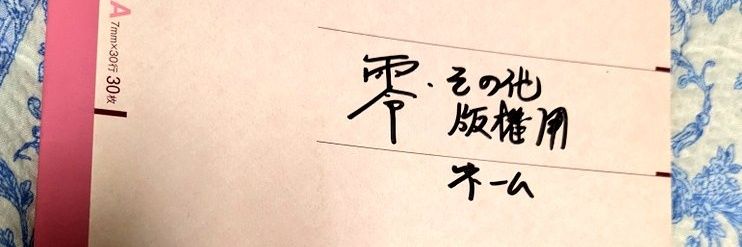 A 7mm×30行 30枚
零・その他
版權用
ネーム